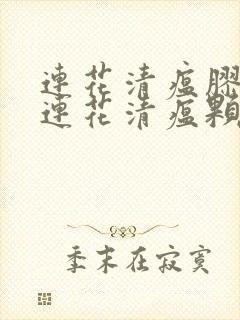 連花清瘟膠
連花清瘟顆
季末在寂寞